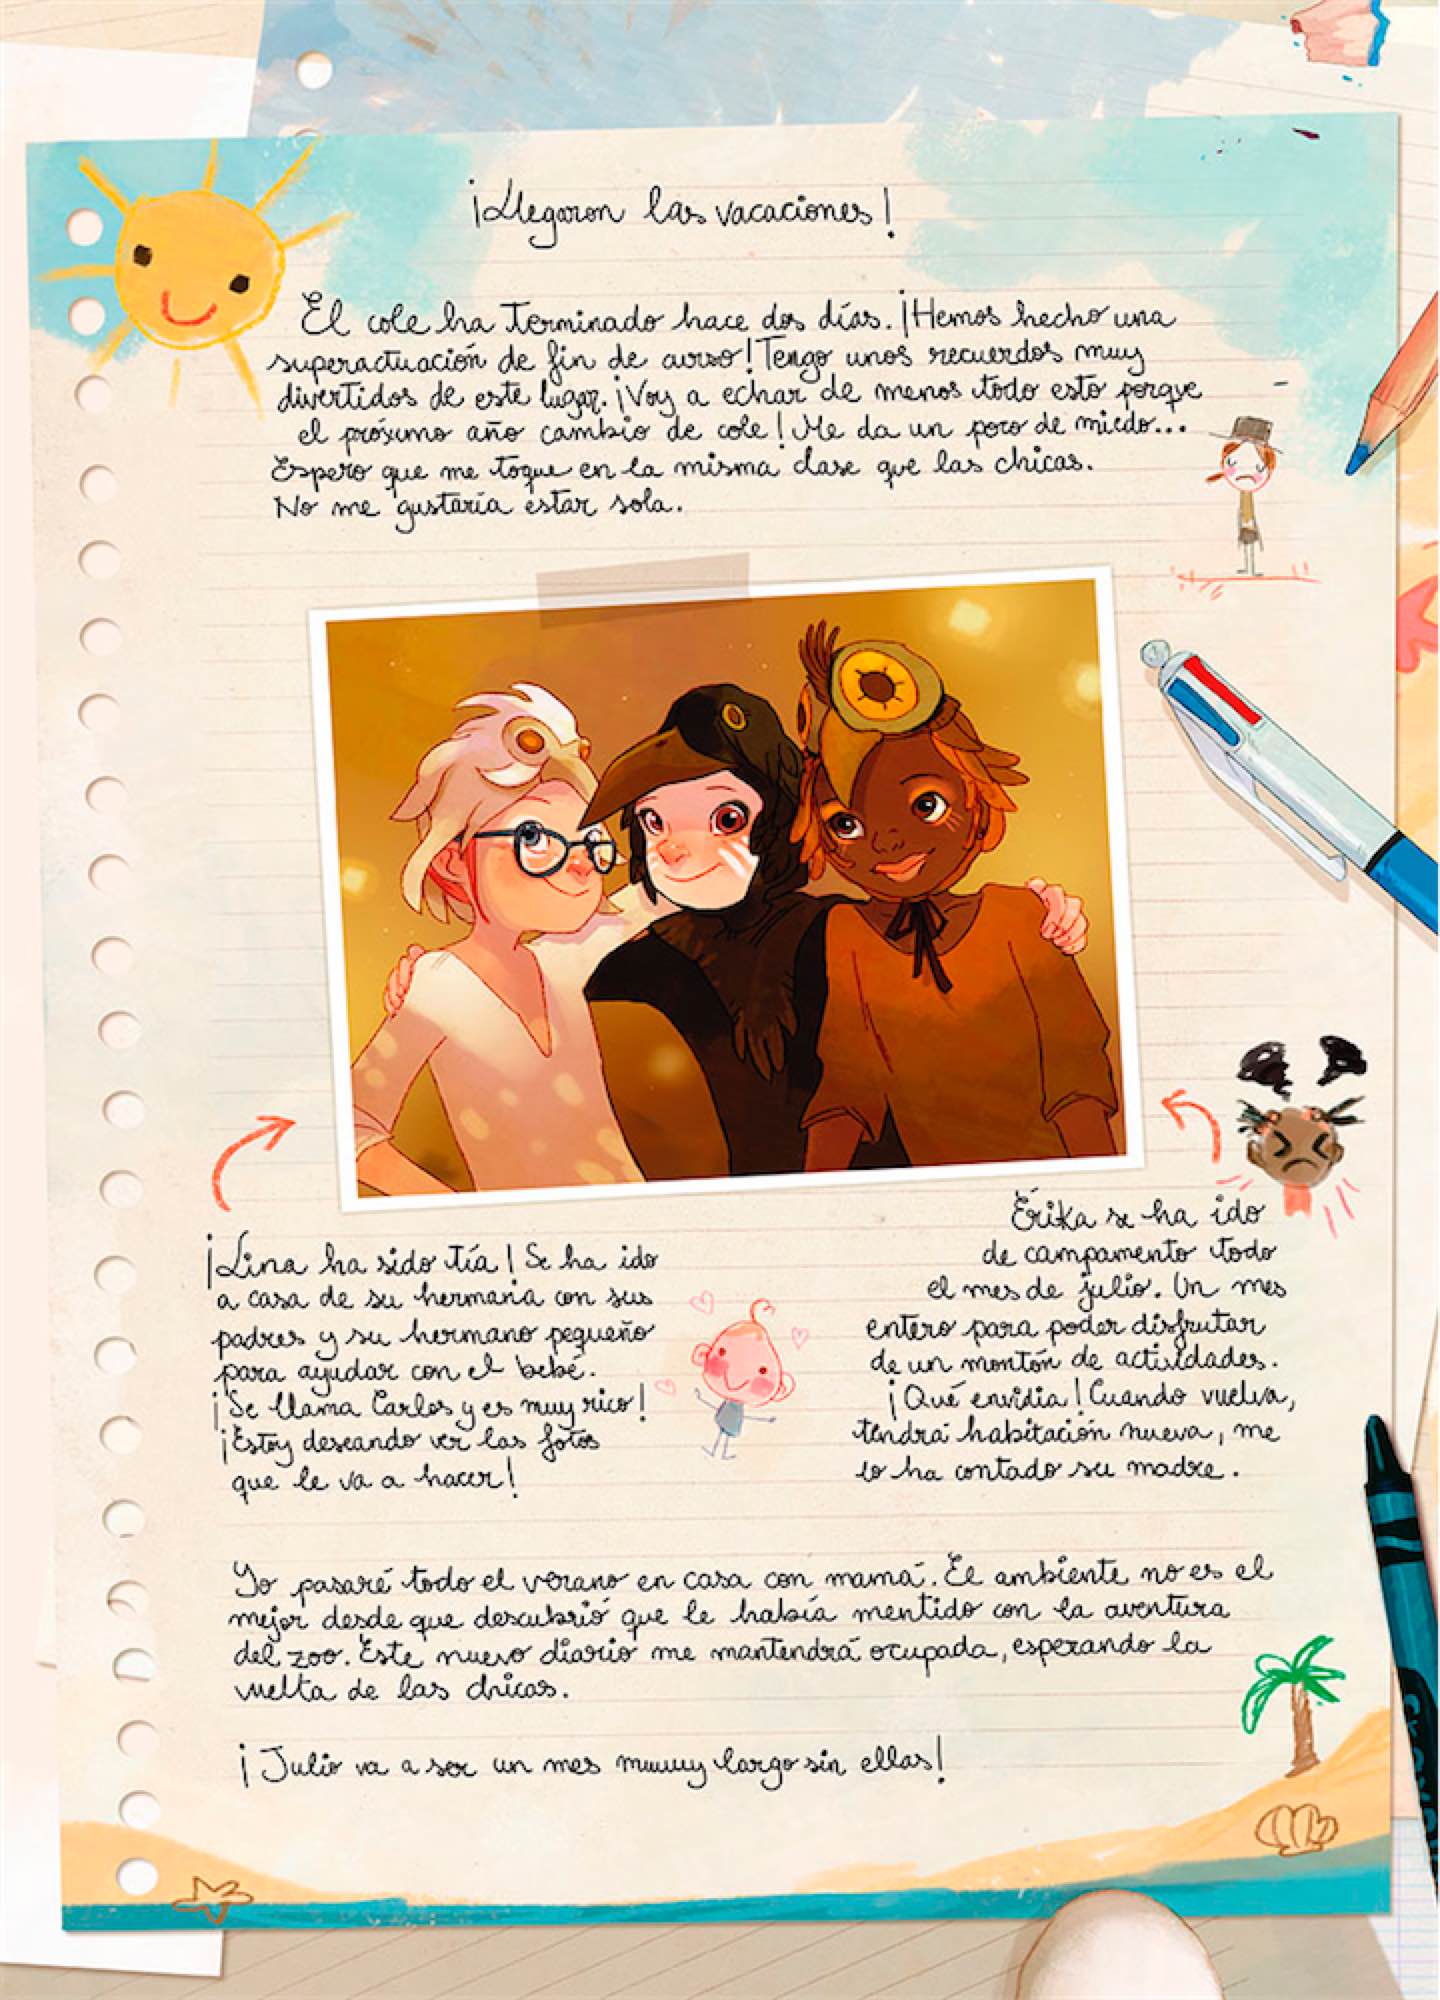 ¡Llegaron las vacaciones!
El cole ha terminado hace dos días. ¡Hemos hecho una
superactuación de fin de curso! Tengo unos recuerdos muy
divertidos de este lugar. ¡Voy a echar de menos todo esto porque
el próximo año cambio de cole! Me da un poco de miedo...
Espero que me toque en la misma clase que las chicas.
No me gustaría estar sola.
¡Lina ha sido tía! Se ha ido
a casa de su hermana con sus
padres y su hermano pequeño
para ayudar con el bebé.
¡Se llama Carlos y es muy rico!
¡Estoy deseando ver las fotos
que le va a hacer!
Érika se ha ido
de campamento todo
el mes de julio. Un mes
entero para poder disfrutar
de un montón de actividades.
¡Qué envidia! Cuando vuelva,
tendrá habitación nueva, me
lo ha contado su madre.
Yo pasaré todo el verano en casa con mamá. El ambiente no es el
mejor desde que descubrió que le había mentido con la aventura
del zoo. Este nuevo diario me mantendrá ocupada, esperando la
vuelta de las chicas.
¡Julio va a ser un mes muuuy largo sin ellas!